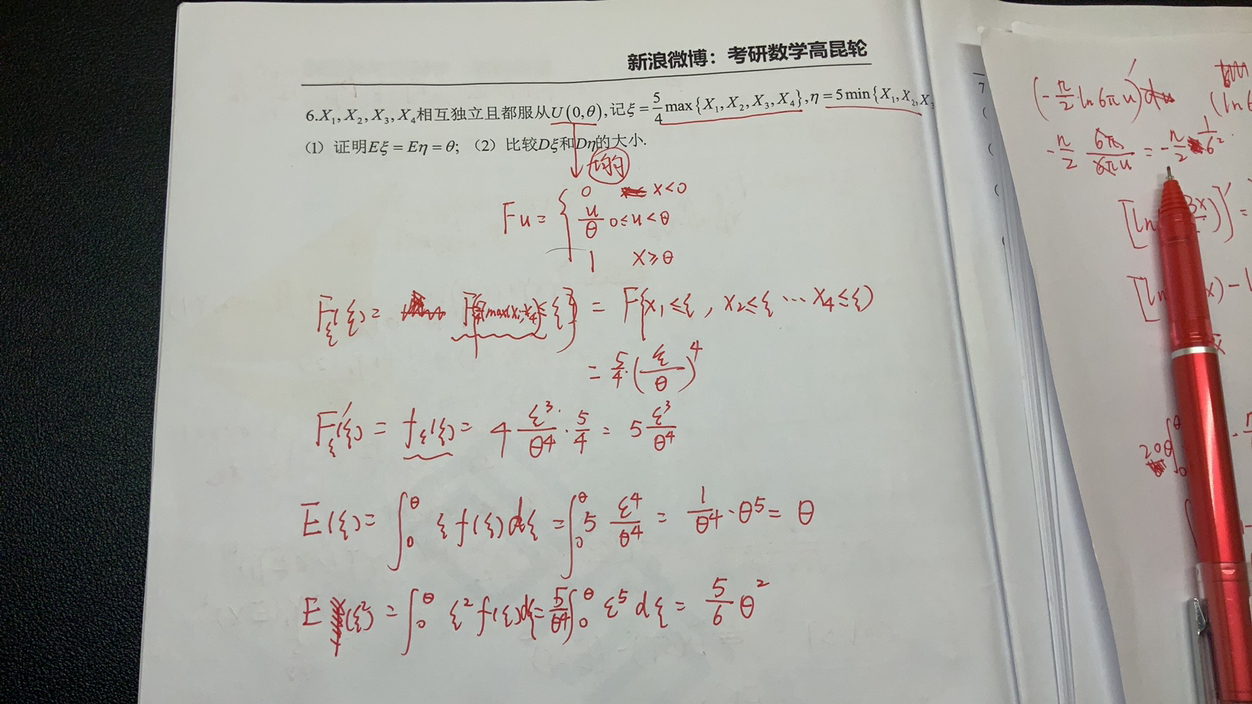 新浪微博：考研数学高昆轮
6.X₁,X₂,X₃,X₄相互独立且都服从U(0,θ),记ξ=5/4 max{X₁,X₂,X₃,X₄},η=5min{X₁,X₂,X₃
(1) 证明Eξ=Eη=θ; (2) 比较Dξ和Dη的大小.
均匀
Fu = { 0 x<0
u/θ 0≤u<θ
1 x≥θ
F_ξ(ξ) = F{max(x₁…x₄)≤ξ} = F{x₁≤ξ, x₂≤ξ … x₄≤ξ)
= 5/4·(ξ/θ)⁴
F_ξ'(ξ) = f_ξ(ξ) = 4 ξ³/θ⁴ · 5/4 = 5 ξ³/θ⁴
E(ξ) = ∫₀^θ ξ f(ξ)dξ = ∫₀^θ 5 ξ⁴/θ⁴ = 1/θ⁴ · θ⁵ = θ
E(ξ²) = ∫₀^θ ξ² f(ξ)dξ = 5/θ⁴ ∫₀^θ ξ⁵ dξ = 5/6 θ²
(-n/2 ln6πu)'
-n/2 6π/6πu = -n/2
[ln
[ln
20θ ∫₀^θ